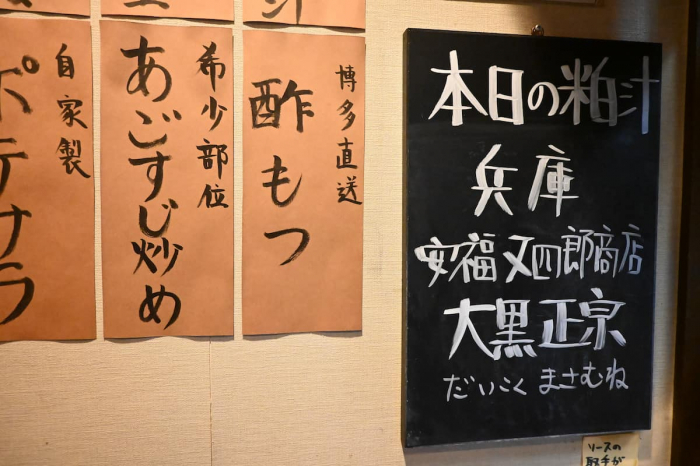 本日の粕汁
兵庫
安福又四郎商店
大黒正宗
だいこくまさむね
博多直送
酢もつ
希少部位
あごすじ炒め
自家製
ポテサラ
ソースの
取手が